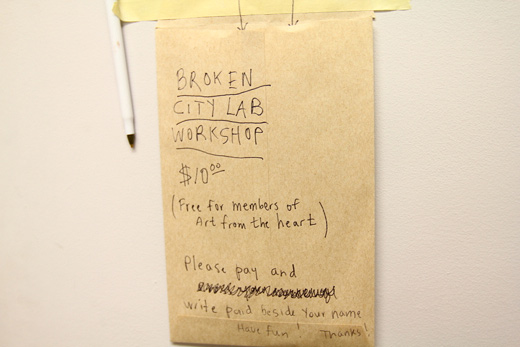 BROKEN
CITY LAB
WORKSHOP
$10.00
(Free for members of
Art from the heart)
Please pay and
write paid beside your name
Have fun! Thanks!